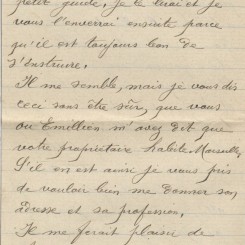 petit guide. je le lirai et je
vous l'enverrai ensuite parce
qu'il est toujours bon de
s'instruire.
Il me semble, mais je vous dis
ceci sans être sûr, que vous
ou Emilien m'avez dit que
votre propriétaire habite Marseille.
S'il en est ainsi je vous prie
de vouloir bien me donner son
adresse et sa profession.
Il me ferait plaisir de